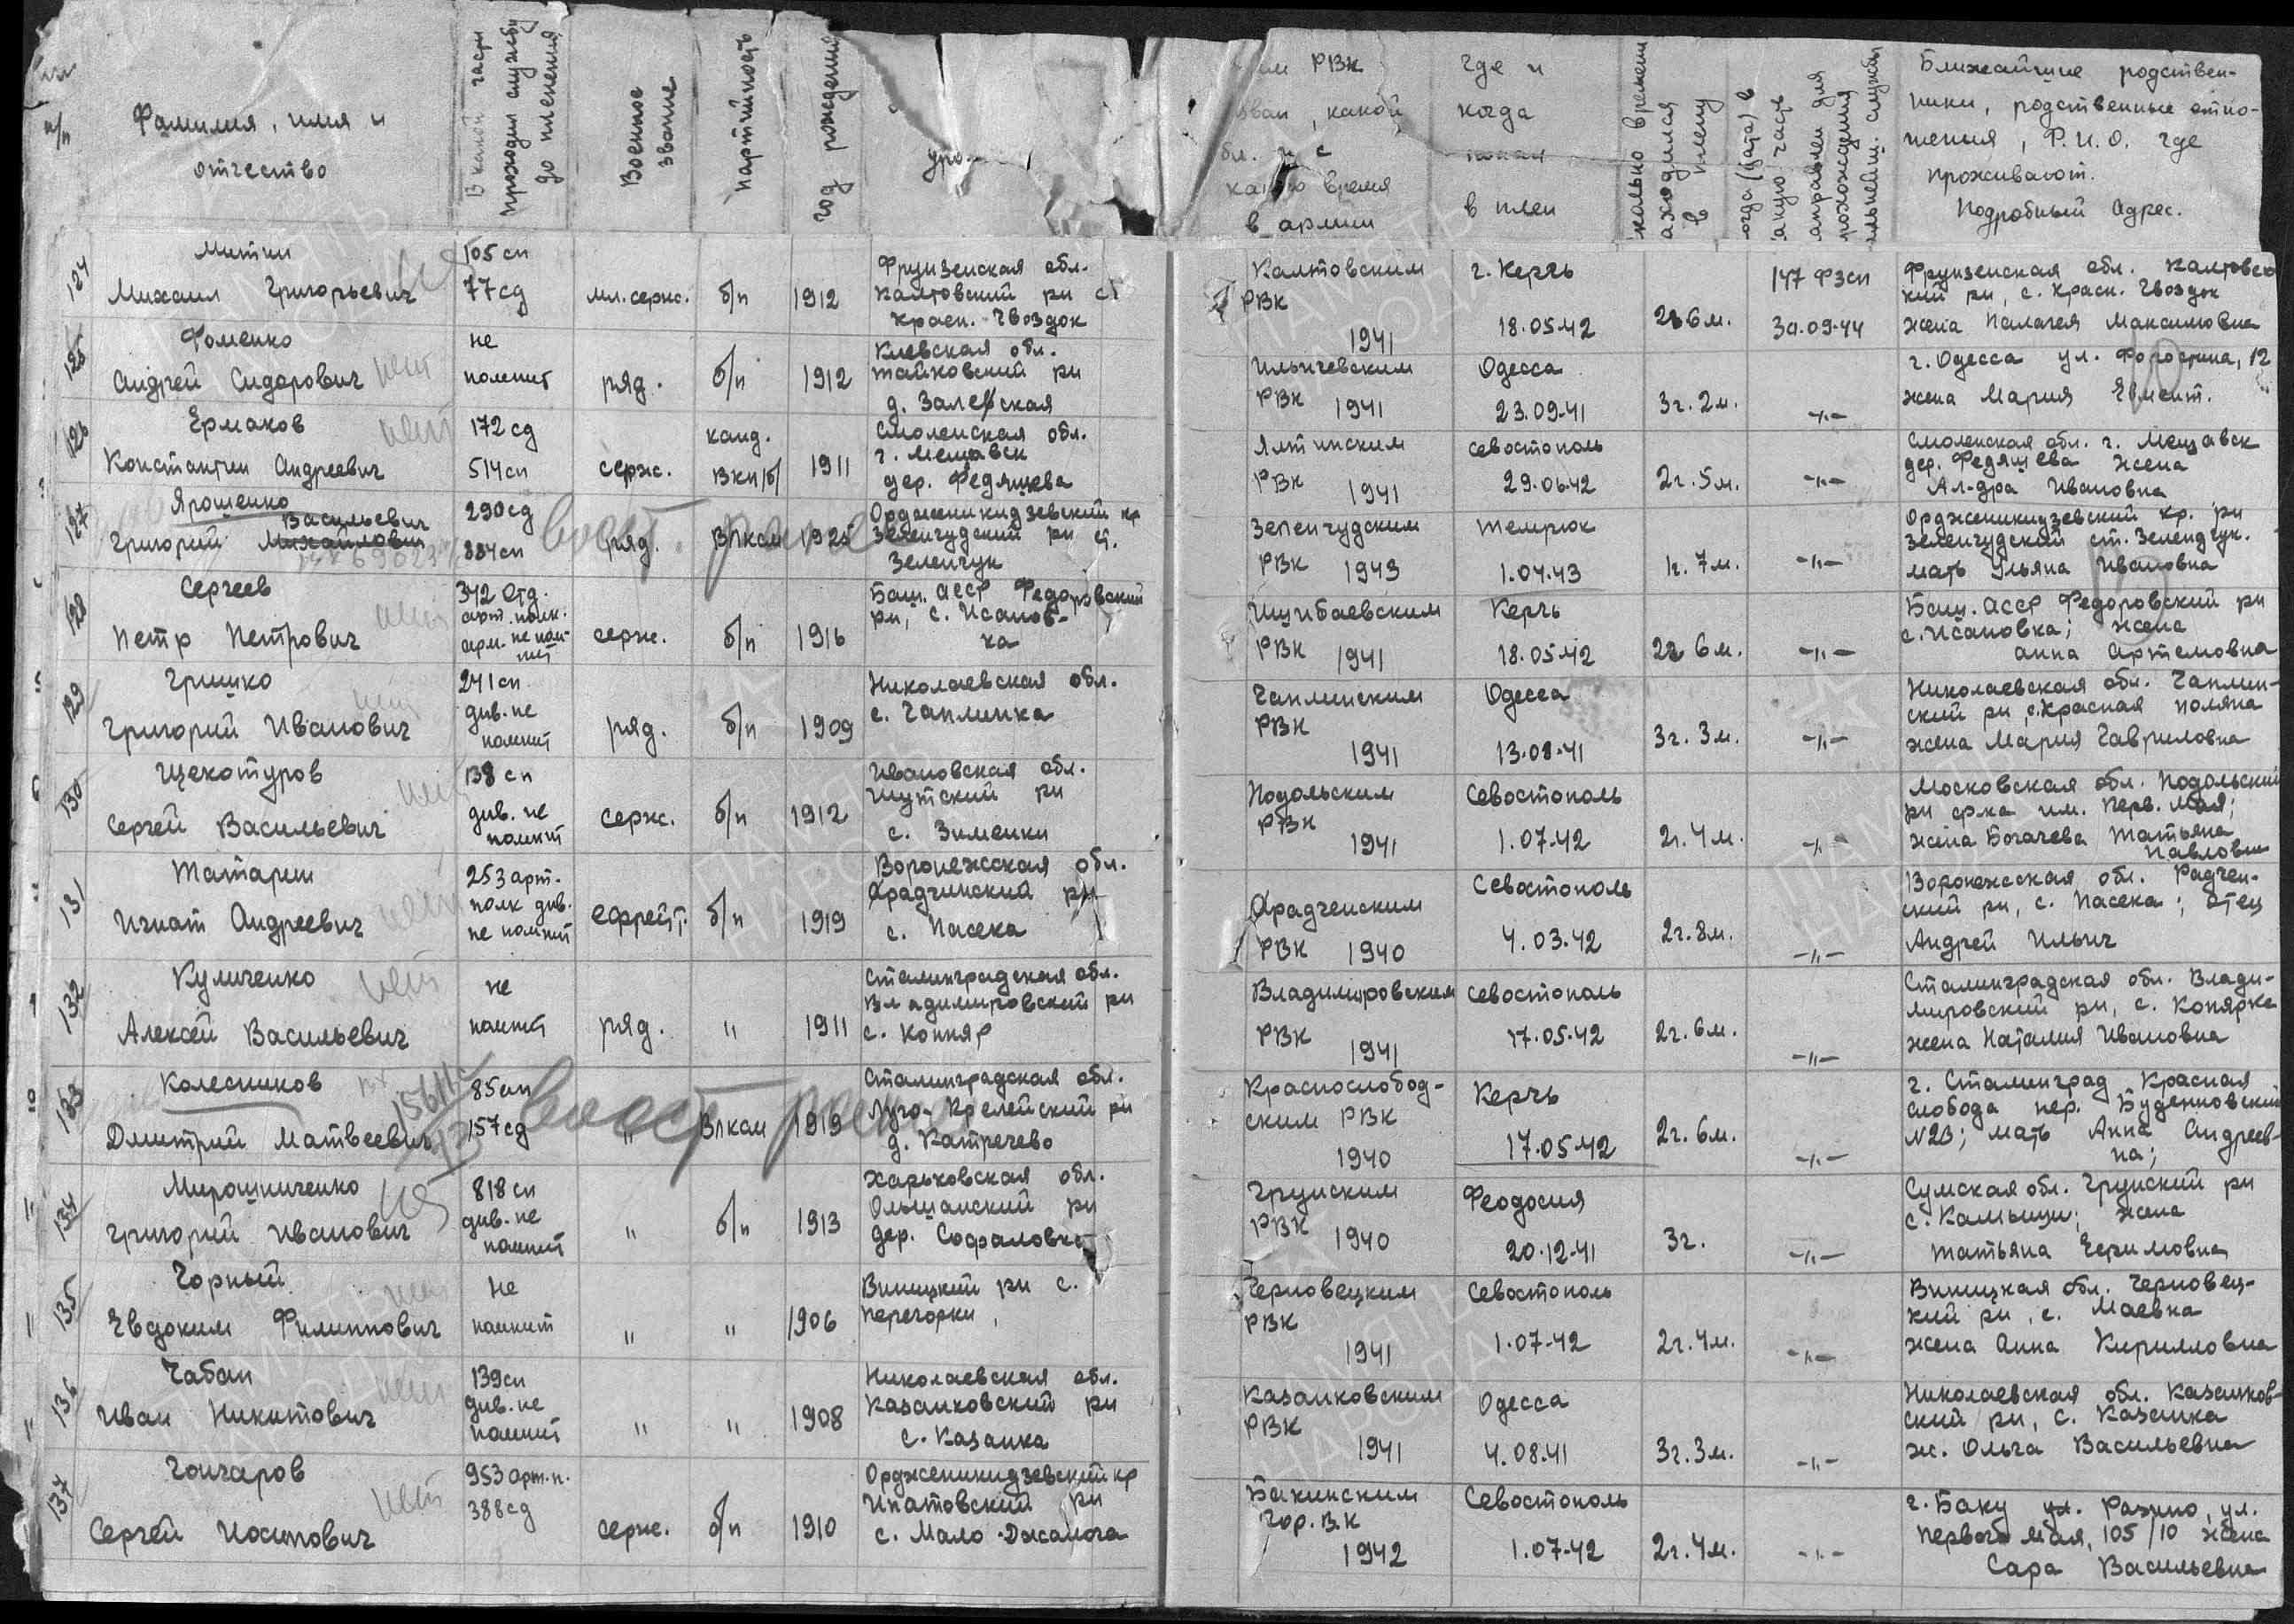 Фамилия, имя и
отчество
В какой части
проходил службу
до пленения
Военное
звание
Партийность
год рождения
РВК
какой
обл. и с
время
в армии
где и
когда
попал
в плен
находился
в плену
Ближайшие родствен-
ники, родственные отно-
шения, Ф.И.О. где
проживают.
Подробный адрес.
124
Митин
Михаил Григорьевич
105 сп
77 сд
мл. серж.
б/п
1912
Фрунзенская обл.
Калтовский рн с.
Красн. Гвоздок
Калтовским
РВК
1941
г. Керчь
18.05.42
2г 6м.
147 ФЗСП
30.09.44
Фрунзенская обл. Калтовс
кий рн, с. Красн. Гвоздок
жена Палагея Максимовна
125
Фоменко
Андрей Сидорович
нет
не
помнит
ряд.
б/п
1912
Киевская обл.
рн
д.
Ильичевским
РВК 1941
Одесса
23.09.41
3г. 2м.
-"-
г. Одесса ул. 12
жена Мария
126
Ермаков
Константин Андреевич
нет
172 сд
514 сп
серж.
канд.
ВКП/б/
1911
Смоленская обл.
г. Мещавск
дер. Федяшева
Ялтинским
РВК 1941
Севостополь
29.06.42
2г. 5м.
-"-
Смоленская обл. г. Мещавск
дер. Федяшева жена
Ал-дра Ивановна
127
Ярошенко
Васильевич
Григорий Михайлович
290 сд
884 сп
ряд.
ВЛКСМ
1925
Орджоникидзевский кр
Зеленчудский рн ст.
Зеленчук
Зеленчудским
РВК 1943
Темрюк
1.04.43
1г. 7м.
-"-
Орджоникидзевский кр. рн
Зеленчудский ст. Зелендчук.
мать Ульяна Ивановна
128
Сергеев
Петр Петрович
нет
342 отд.
арт. полк.
арм. не пом-
нит
серж.
б/п
1916
Баш. АССР Федоровский
рн, с. Исанов-
ка
Ишибаевским
РВК 1941
Керчь
18.05.42
2г 6м.
-"-
Баш. АССР Федоровский рн
с. Исановка; жена
Анна Артемовна
129
Гришко
Григорий Иванович
нет
241 сп
див. не
помнит
ряд.
б/п
1909
Николаевская обл.
с. Чаплинка
Чаплинским
РВК
1941
Одесса
13.08.41
3г. 3м.
-"-
Николаевская обл. Чаплин-
ский рн, с. Красная поляна
жена Мария Гавриловна
130
Щекотуров
Сергей Васильевич
нет
138 сп
див. не
помнит
серж.
б/п
1912
Ивановская обл.
Шутский рн
с. Зименки
Подольским
РВК
1941
Севостополь
1.07.42
2г. 4м.
-"-
Московская обл. Подольский
рн ф-ка им. Перв. Мая;
жена Богачева Татьяна
Павловн
131
Татарин
Игнат Андреевич
нет
253 арт.
полк див.
не помнит
ефрейт.
б/п
1919
Воронежская обл.
Храдчинский рн
с. Пасека
Храдченским
РВК 1940
Севостополь
4.03.42
2г. 8м.
-"-
Воронежская обл. Радчен-
ский рн, с. Пасека; отец
Андрей Ильич
132
Куличенко
Алексей Васильевич
нет
не
помнит
ряд.
"
1911
Сталинградская обл.
Владимировский рн
с. Копняр
Владимировским
РВК
1941
Севостополь
17.05.42
2г. 6м.
-"-
Сталинградская обл. Влади-
мировский рн, с. Копярка
жена Наталия Ивановна
133
Колесников
Дмитрий Матвеевич
85 сп
157 сд
"
ВЛКСМ
1919
Сталинградская обл.
рн
д. Катречево
Краснослобод-
ским РВК
1940
Керчь
17.05.42
2г. 6м.
-"-
г. Сталинград Красная
слобода пер. Буденновский
мать Анна Андреев-
на;
134
Мирошниченко
Григорий Иванович
818 сп
див. не
помнит
"
б/п
1913
Харьковская обл.
Ольшанский рн
дер. Софаловка
Грунским
РВК 1940
Феодосия
20.12.41
3г.
-"-
Сумская обл. Грунский рн
с. Камыши; жена
Татьяна Ефимовна
135
Чорный
Евдоким Филиппович
нет
не
помнит
"
"
1906
Виницкий рн с.
Перегорки,
Черновецким
РВК
1941
Севостополь
1.07.42
2г. 4м.
-"-
Виницкая обл. Черновец-
кий рн, с. Маевка
жена Анна Кирилловна
136
Чабан
Иван Никитович
нет
139 сп
див. не
помнит
"
"
1908
Николаевская обл.
Казанковский рн
с. Казанка
Казанковским
РВК
1941
Одесса
4.08.41
3г. 3м.
-"-
Николаевская обл. Казанков-
ский рн, с. Казанка
ж. Ольга Васильевна
137
Гончаров
Сергей Иосипович
нет
953 арт. п.
388 сд
серж.
б/п
1910
Орджоникидзевский кр
Ипатовский рн
с. Мало-Джалога
Бакинским
Гор. В.К
1942
Севостополь
1.07.42
2г. 4м.
-"-
г. Баку ул. Разино, ул.
Первого Мая, 105/10 жена
Сара Васильевна